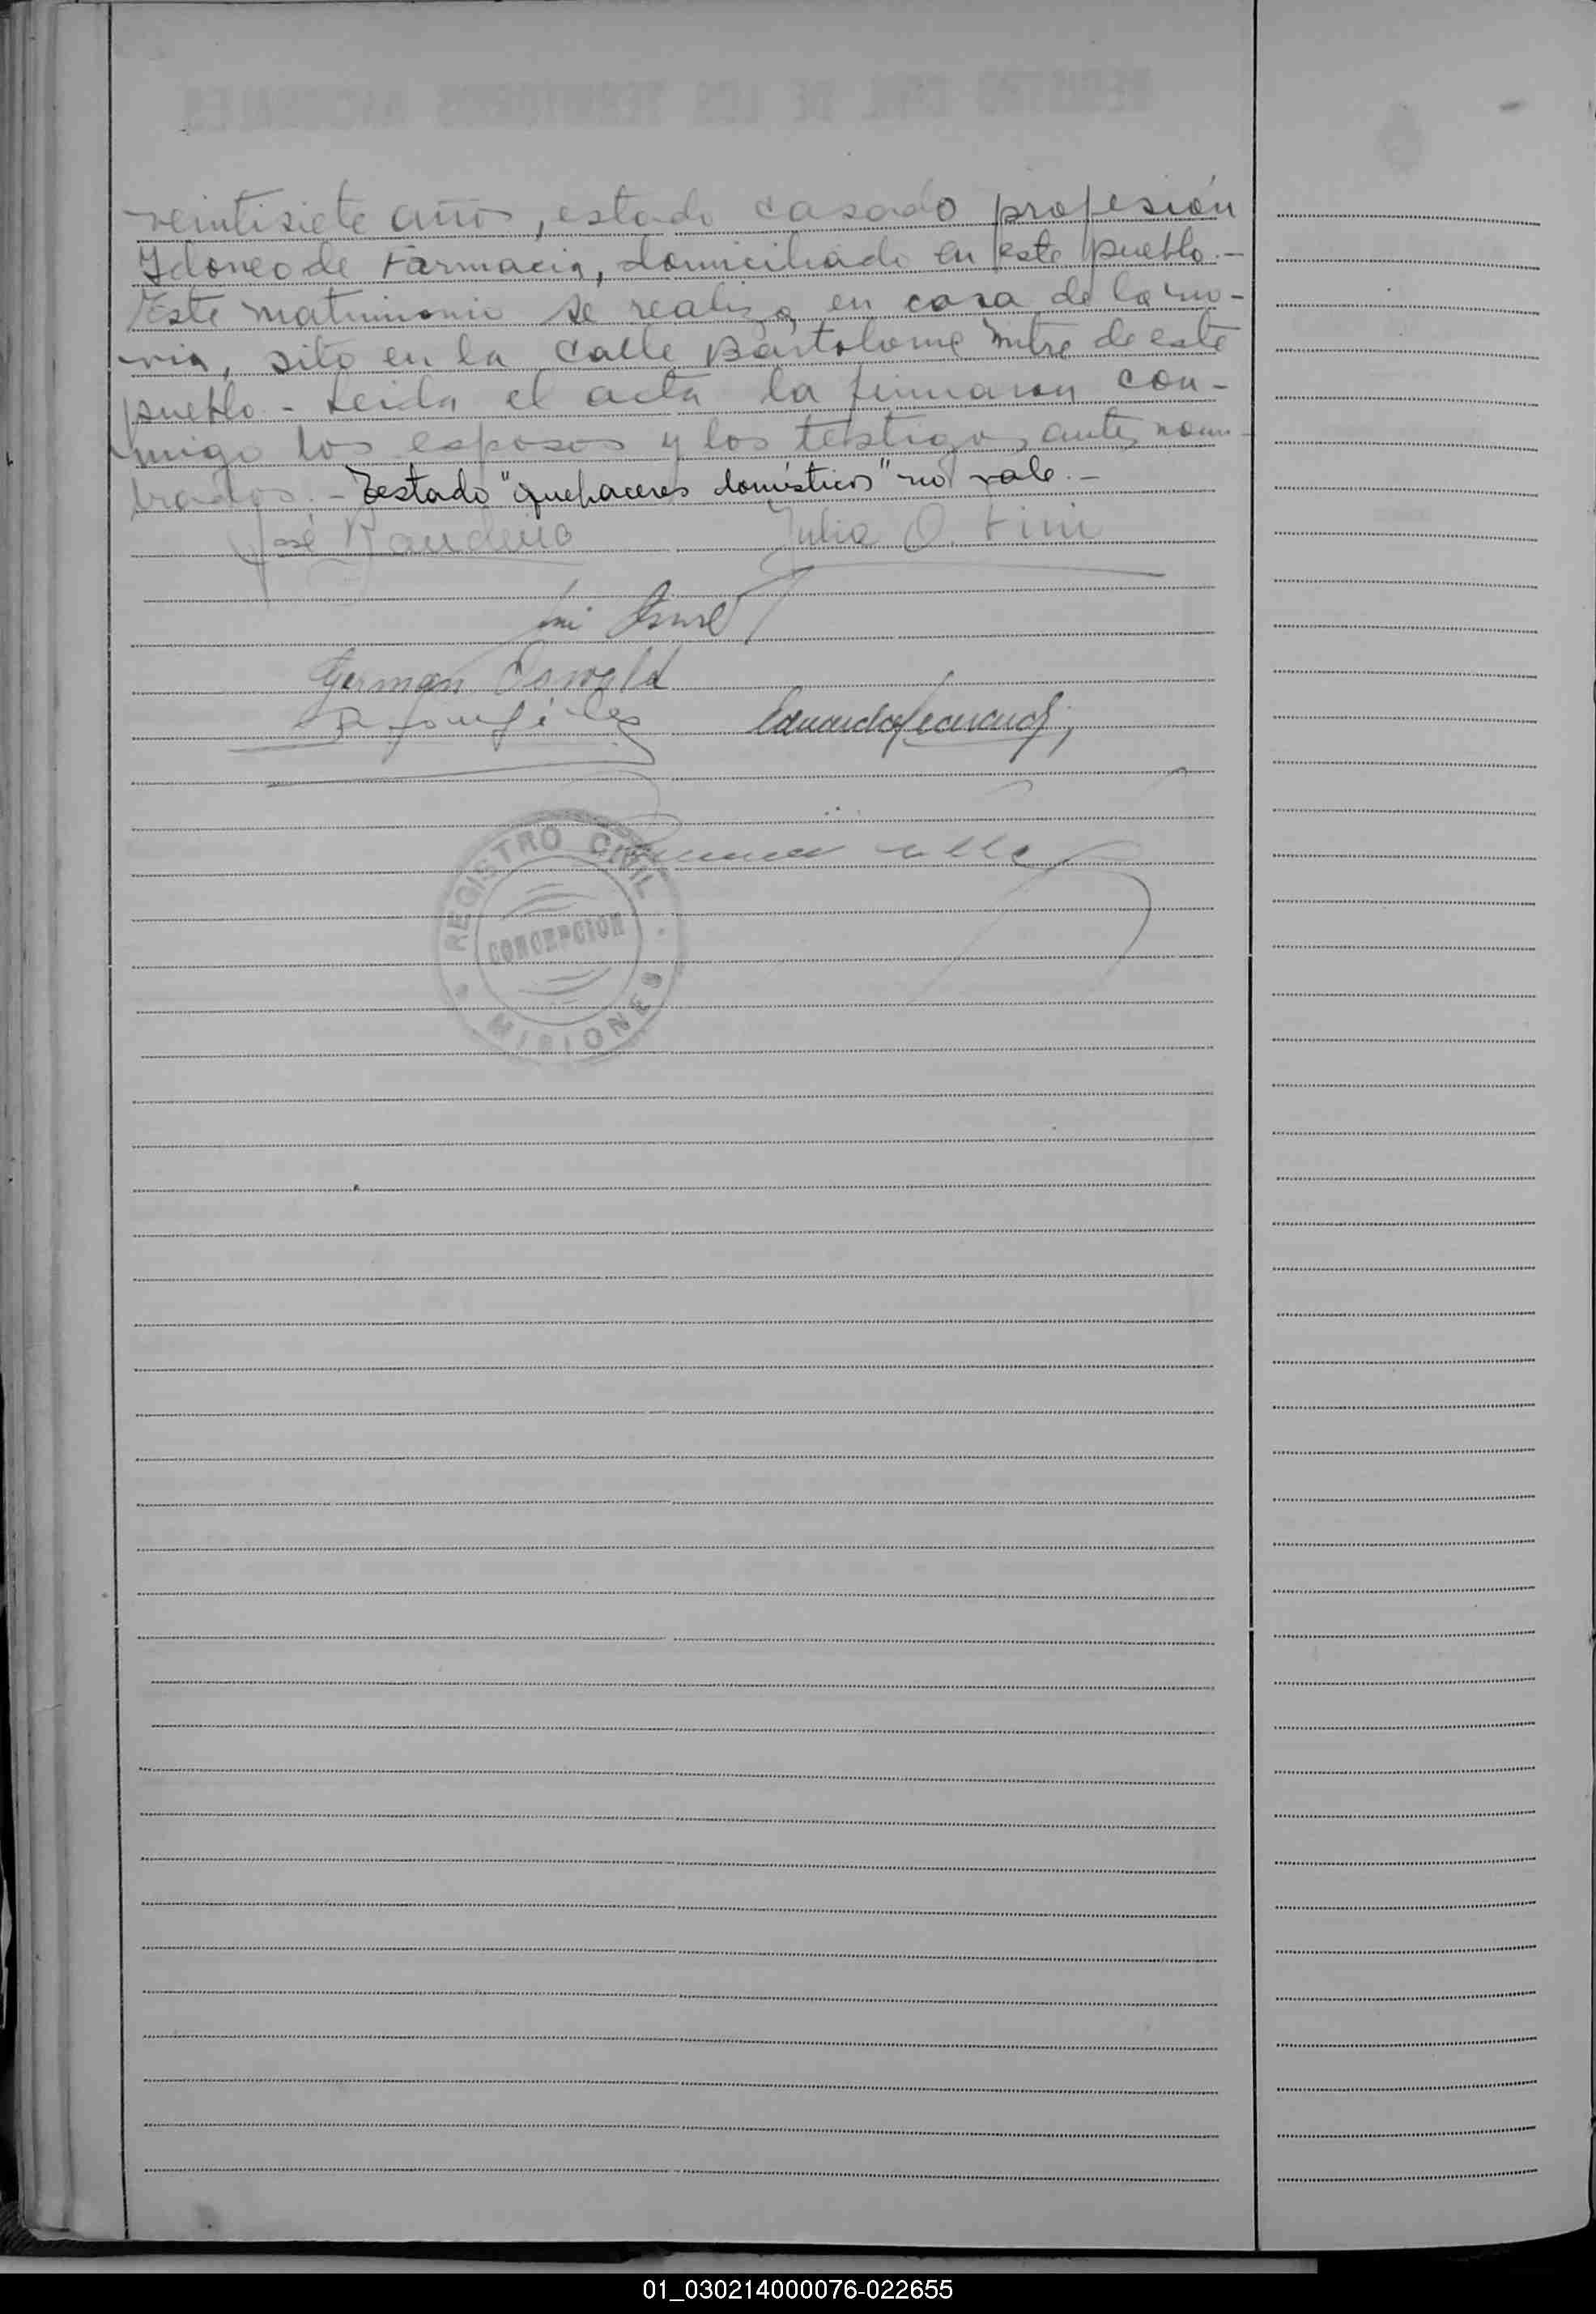 veintisiete años, estado casado profesión
Idoneo de Farmacia, domiciliado en este pueblo.-
Este matrimonio se realiza en casa de la no-
via, sito en la Calle Bartolome Mitre de este
pueblo - Leida el acta la firmaron con-
migo los esposos y los testigos antes nom-
brados. - Testado "quehaceres domésticos" no vale.-
José Julia O. Fini
German Oswald
Eduardo
REGISTRO CIVIL
CONCEPCION
MISIONES
01_030214000076-022655